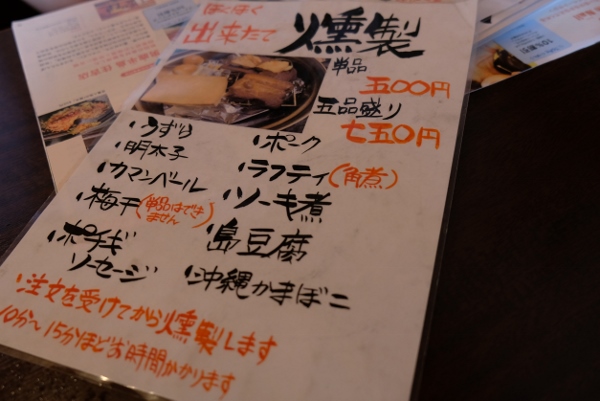 ほくほく
出来たて 燻製
単品
五〇〇円
五品盛り
七五〇円
うずら
明太子
カマンベール
梅干(単品はできません)
ポチギ
ソーセージ
ポーク
ラフティ(角煮)
ソーキ煮
島豆腐
沖縄かまぼこ
注文を受けてから燻製します
10分〜15分ほどお時間かかります